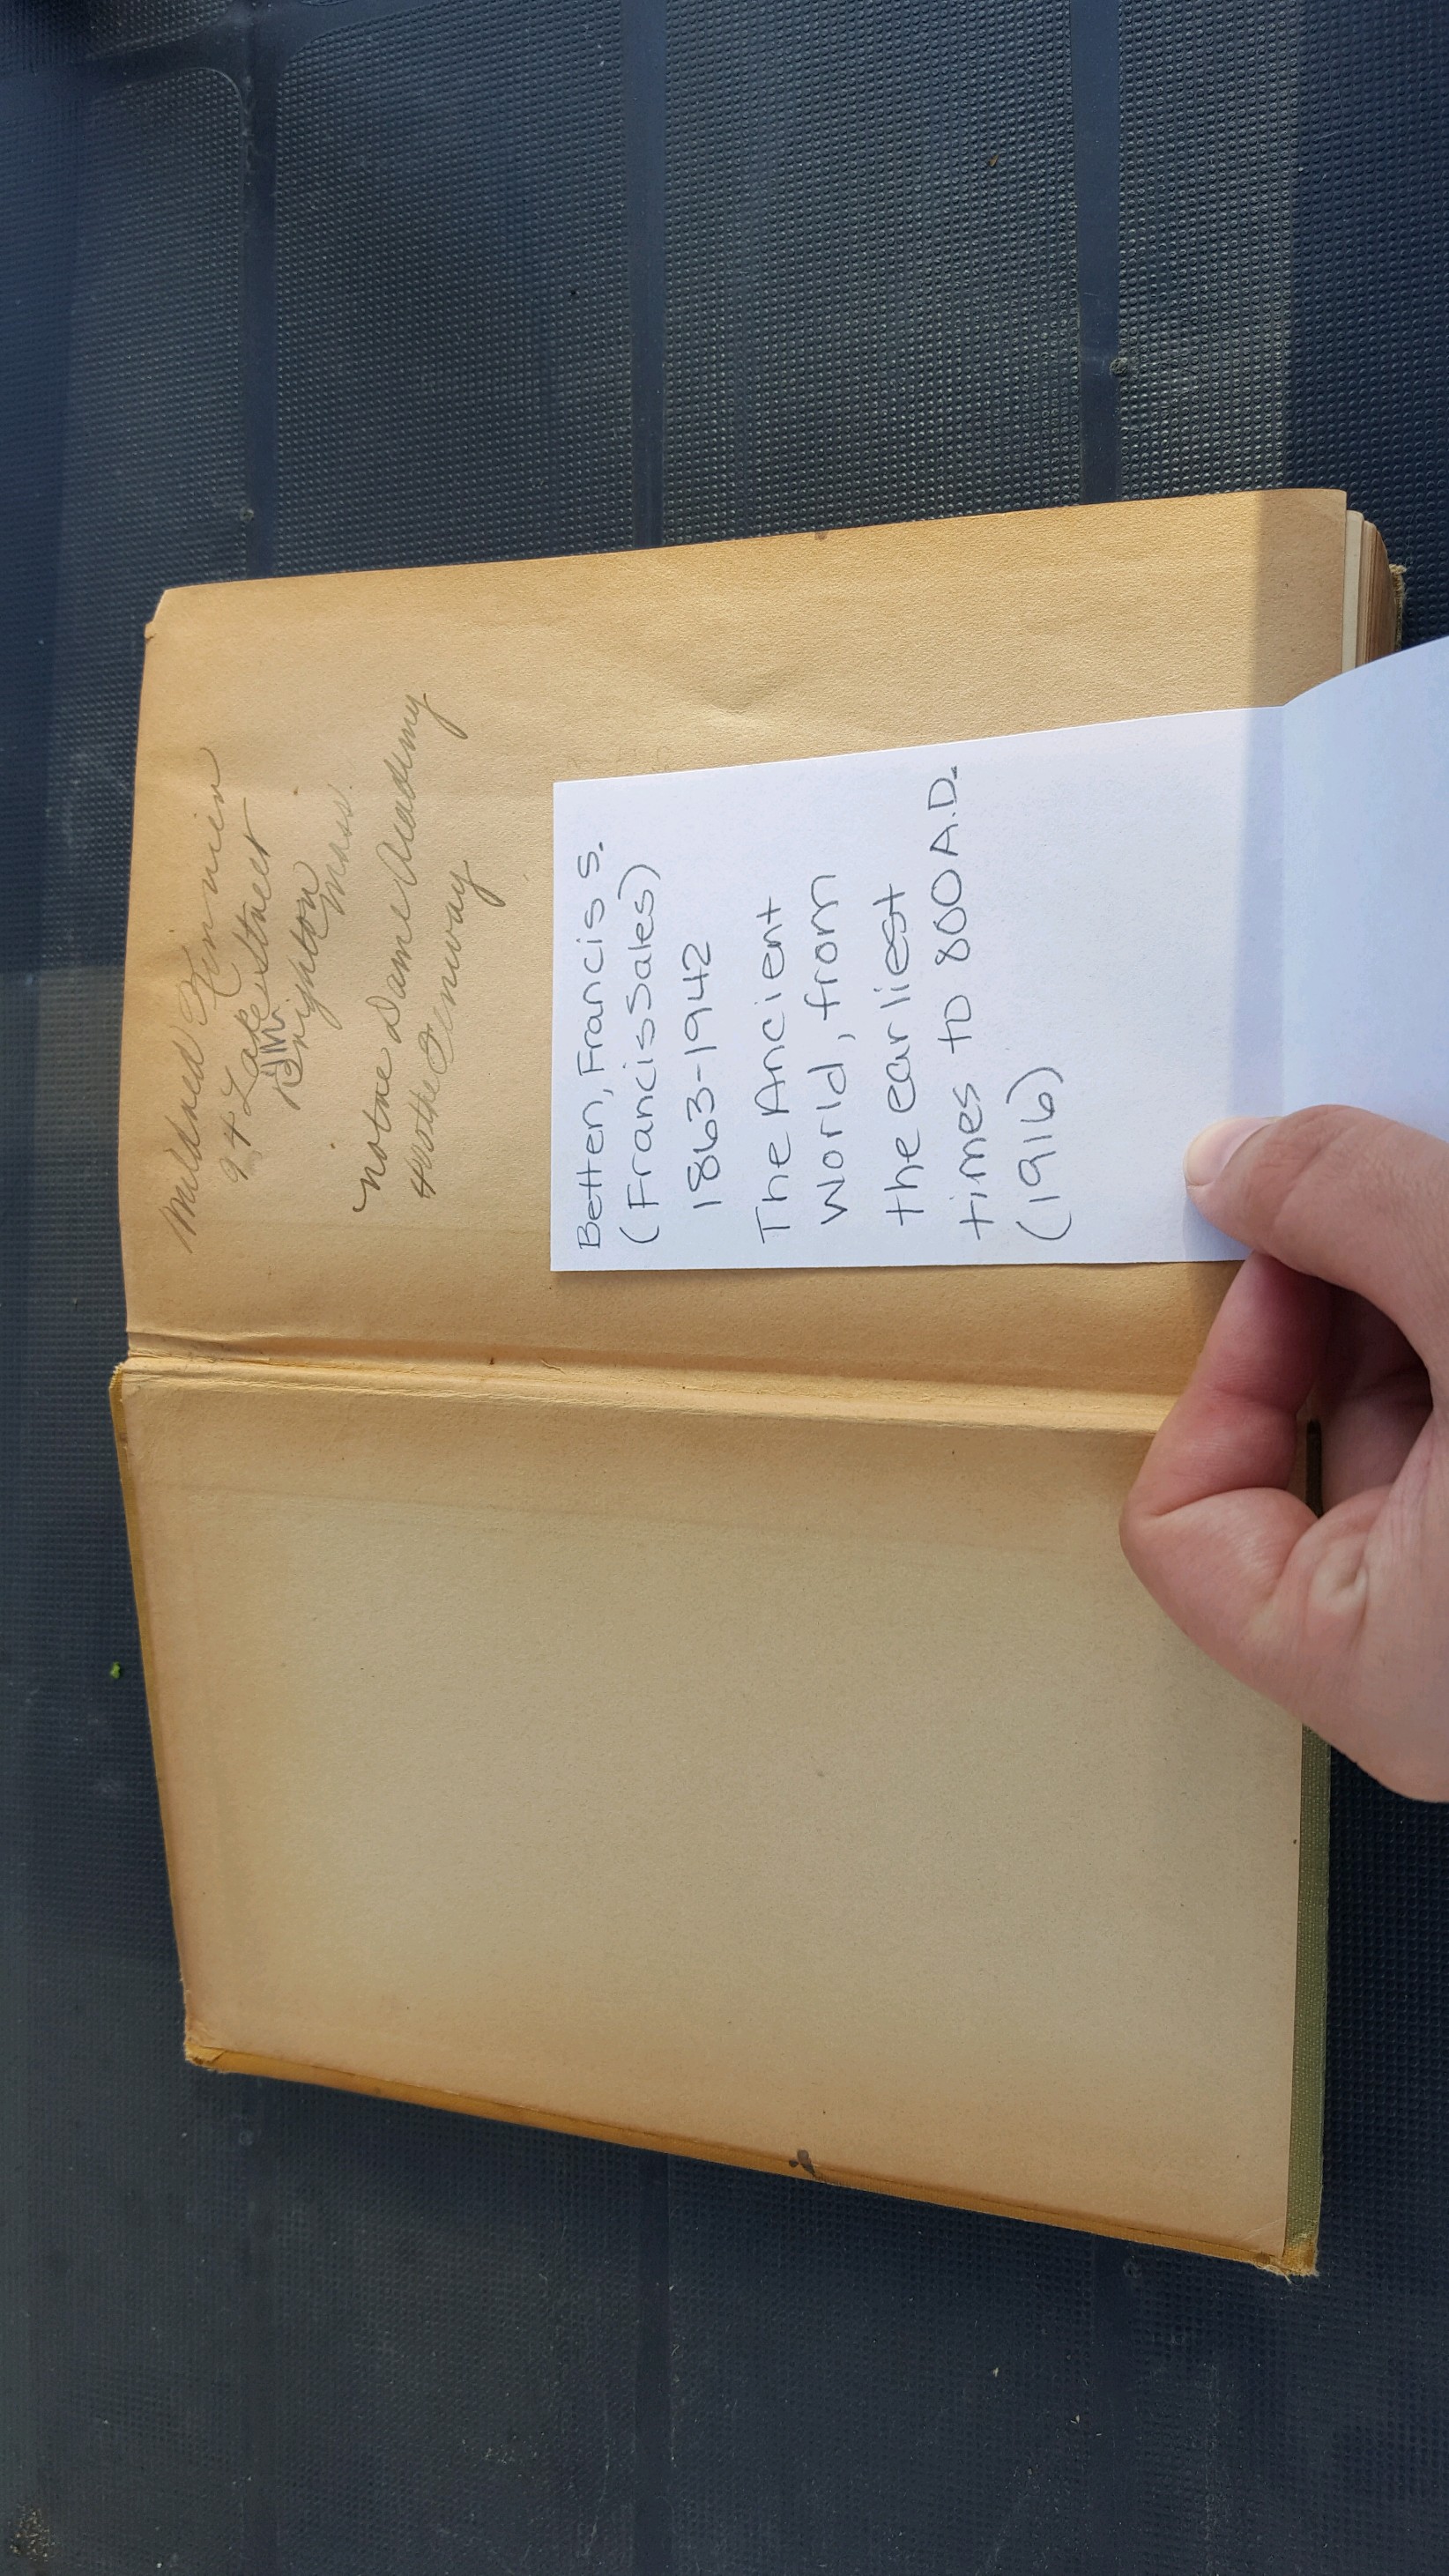 Mildred Finnien
94 Lake Street
Brighton
Mass.
Notre Dame Academy
The Fenway
Betten, Francis S.
(Francis Sales)
1863-1942
The Ancient
World, from
the earliest
times to 800 A.D.
(1916)